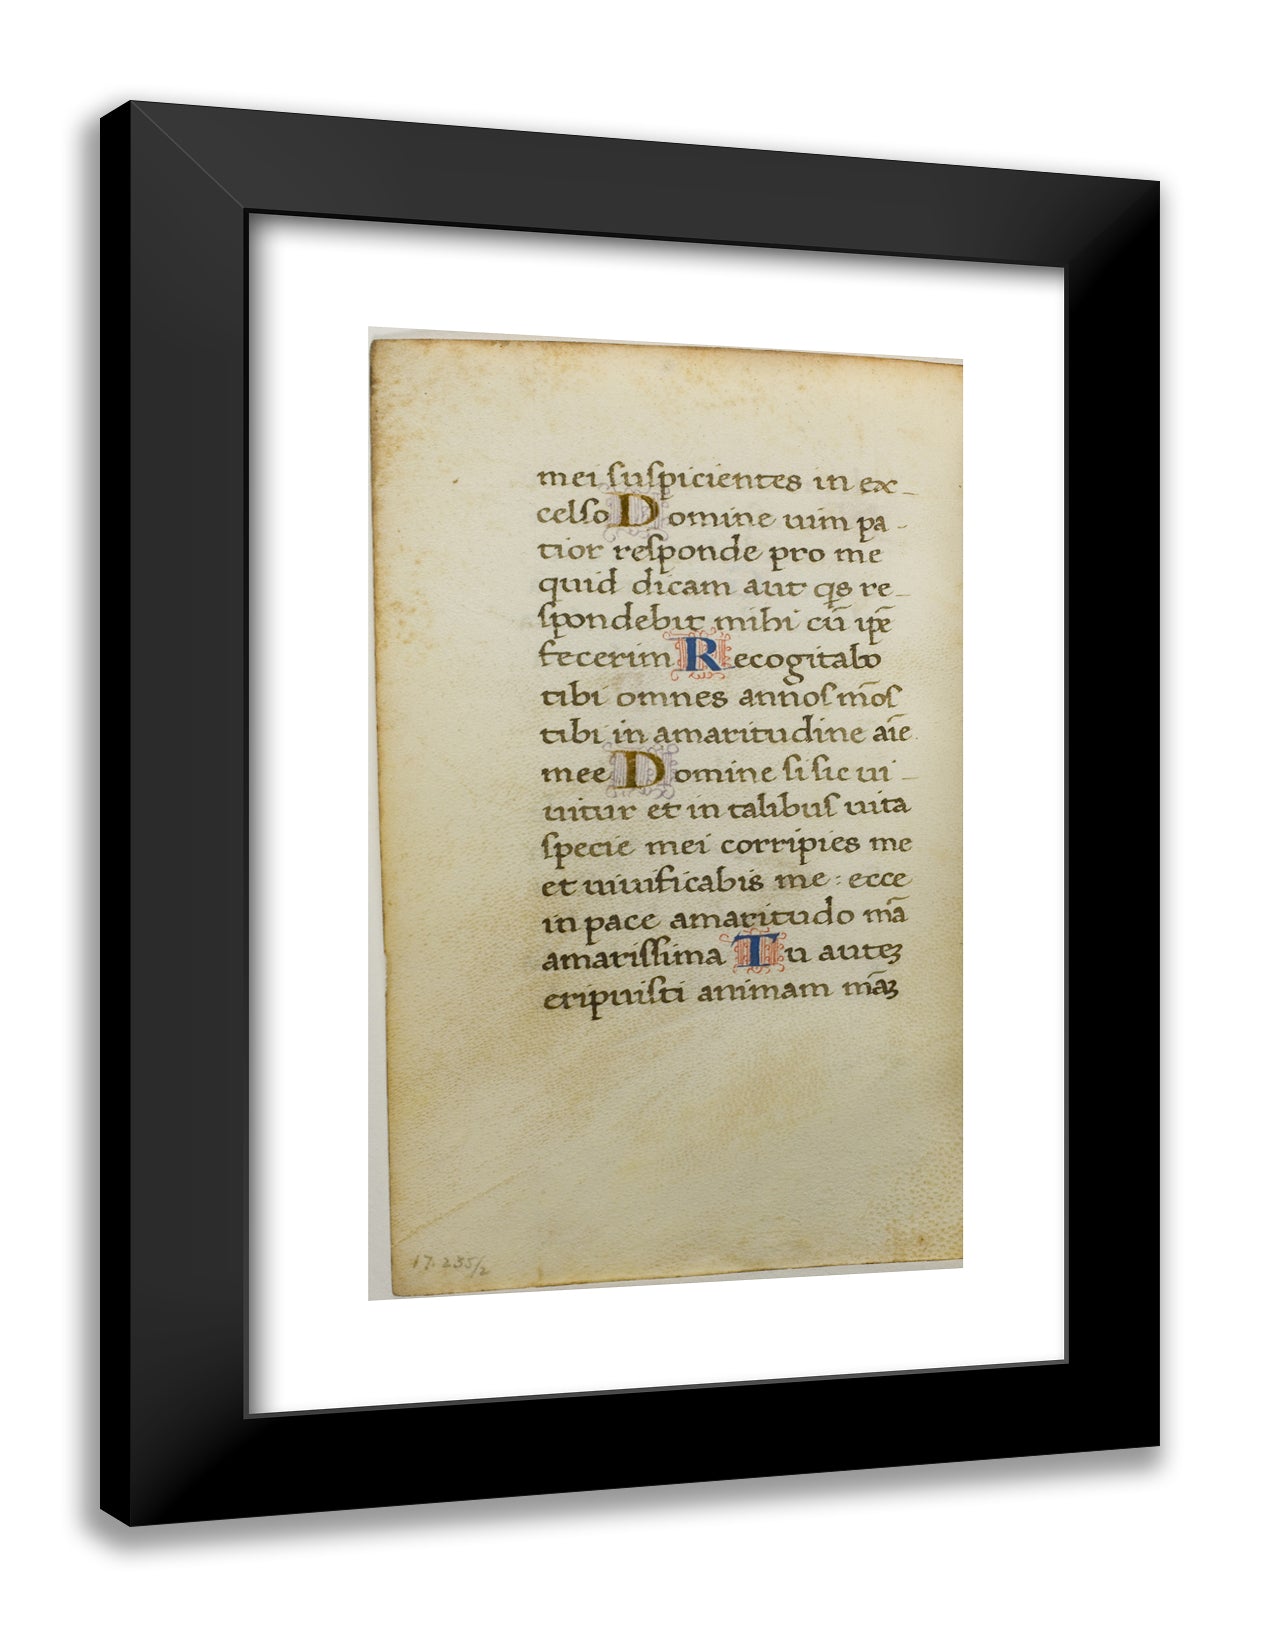 mei suspicientes in ex-
celso Domine uim pa-
tior responde pro me
quid dicam aut qͥs re-
spondebit mihi cū ip̄e
fecerim Recogitabo
tibi omnes annos m̄os
tibi in amaritudine aīe
mee Domine si sic ui-
uitur et in talibus uita
specie mei corripies me
et uiuificabis me: ecce
in pace amaritudo m̄a
amarissima Tu auteꝫ
eripuisti animam m̄aꝫ
17.235/2